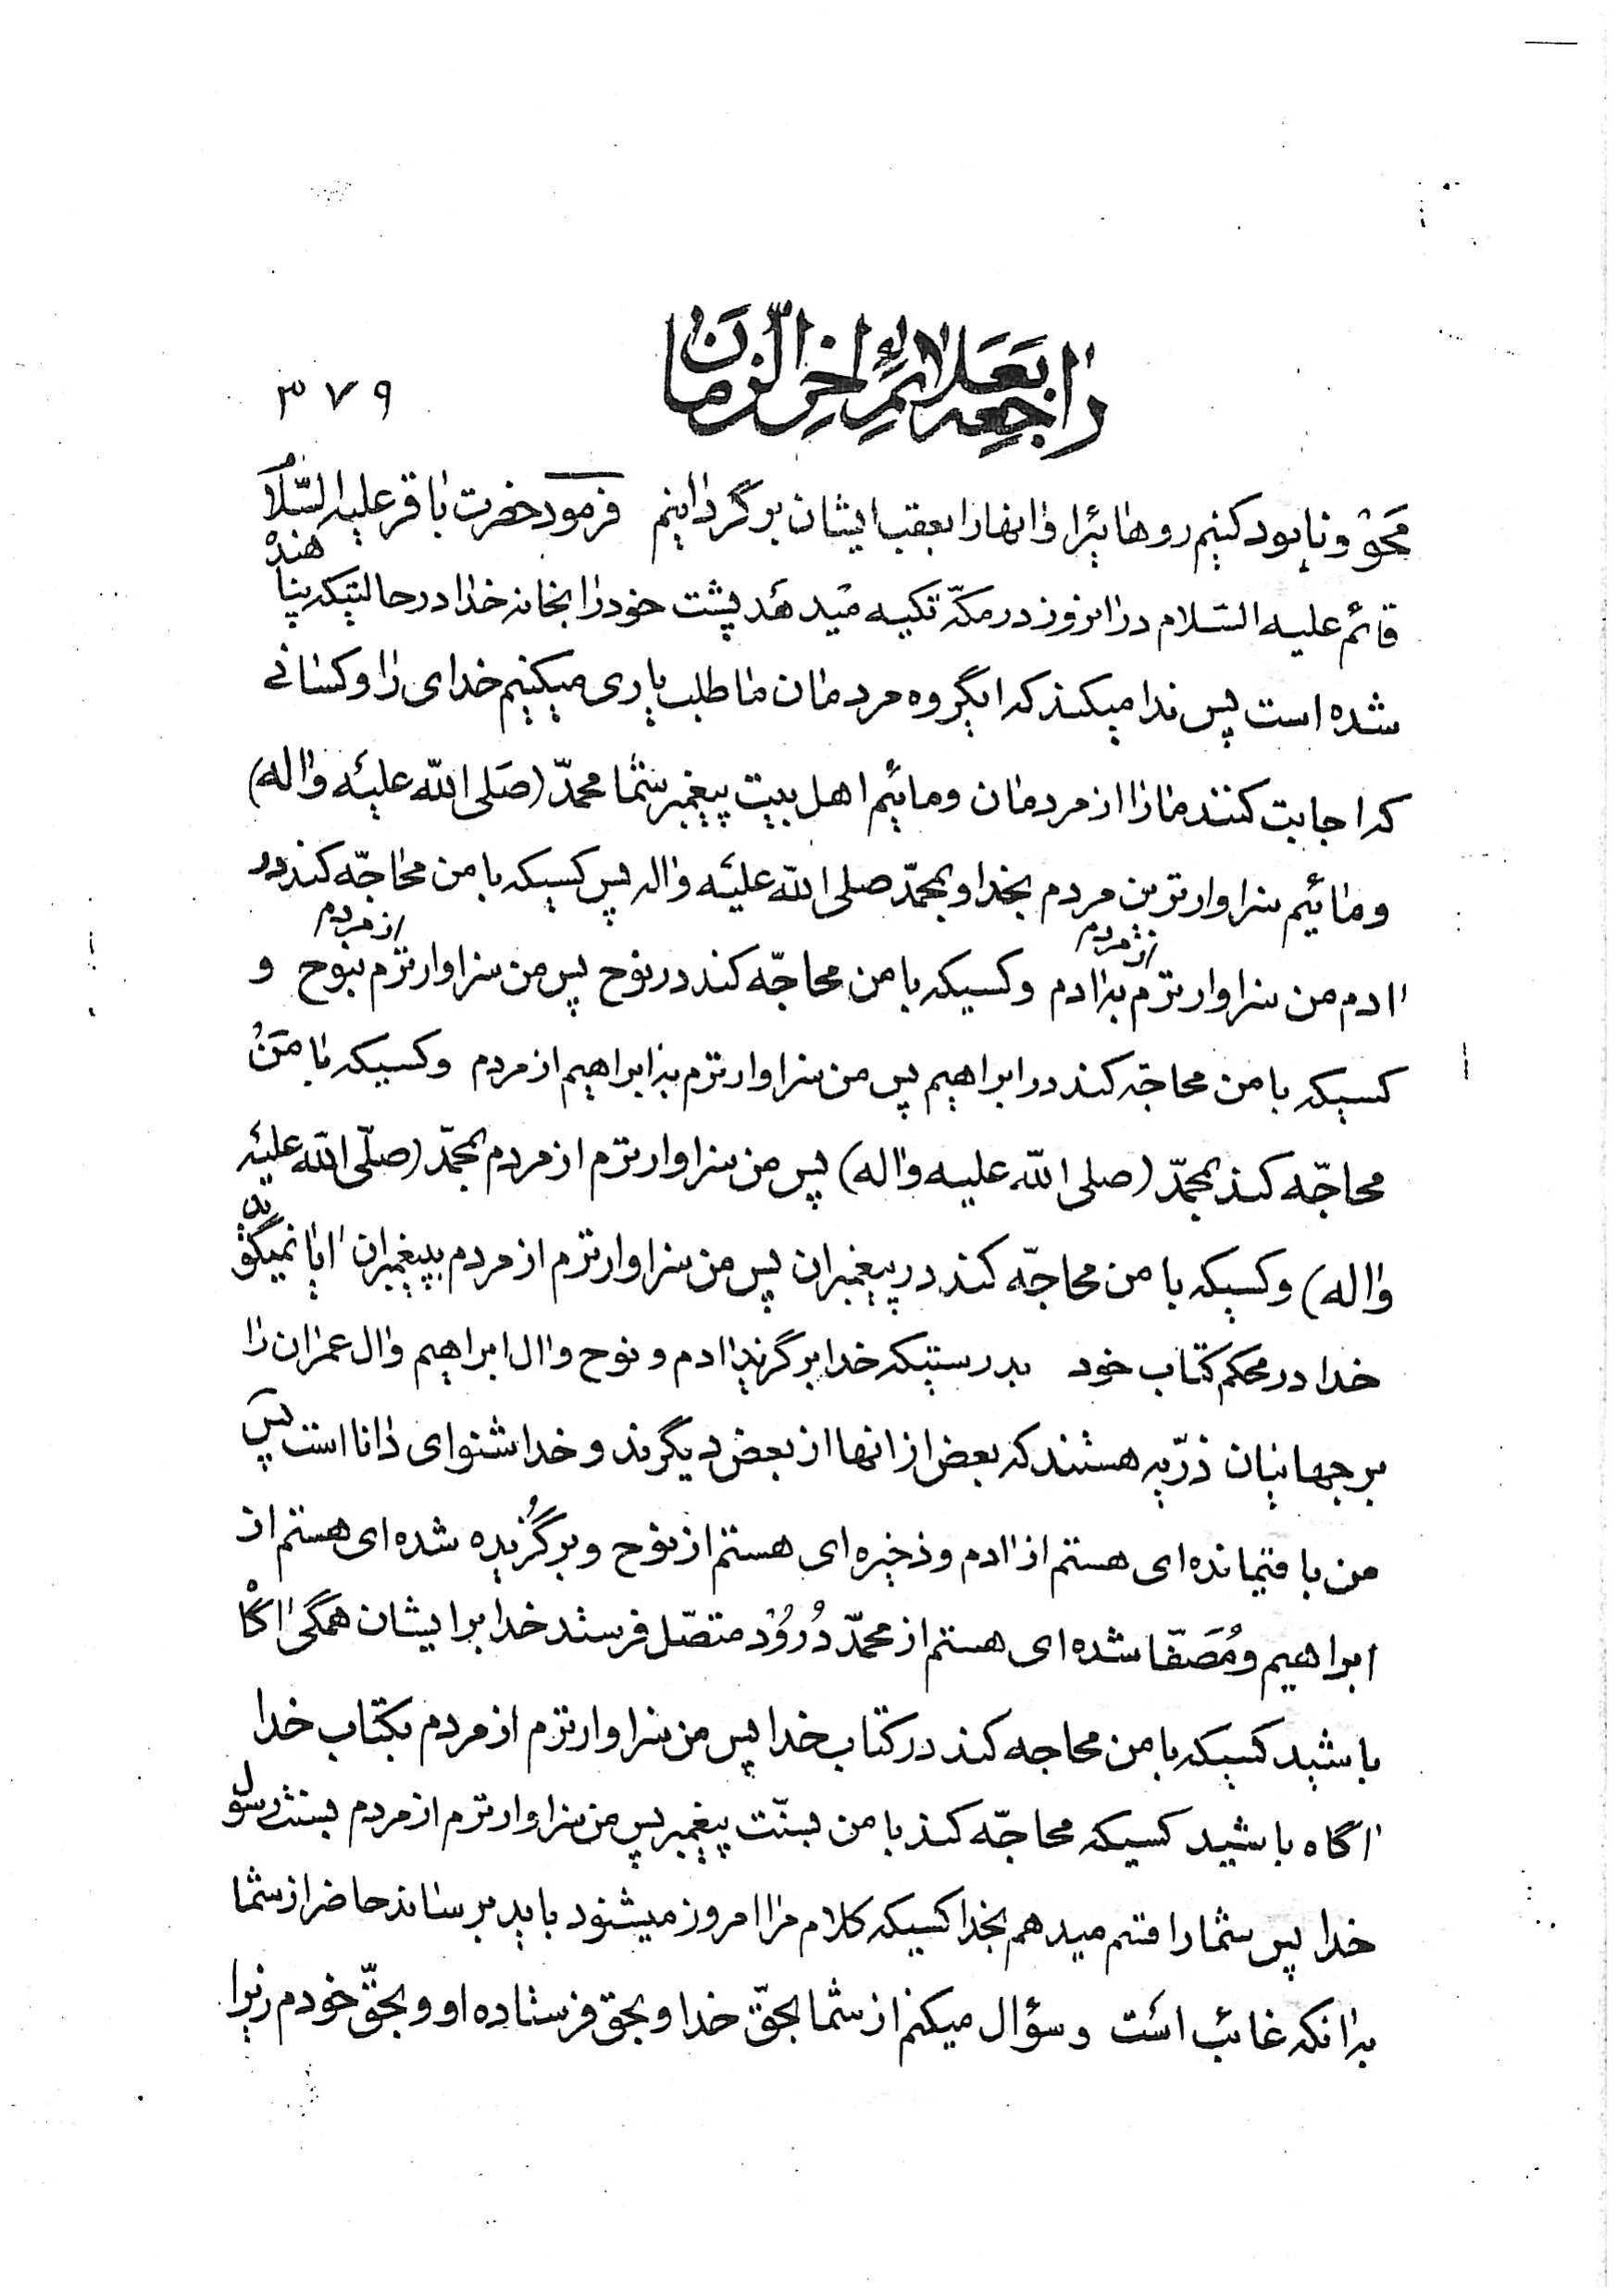 راجعه بعلائم اخر الزمان
۳۷۹
محو و نابود کنیم روهائیرا و انها را بعقب ایشان برگردانیم فرمود حضرت باقر علیه السلام
قائم علیه السلام در انروز در مکه تکیه میدهد پشت خود را بخانه خدا در حالتیکه پناهنده
شده است پس ندا میکند که ایگروه مردمان ما طلب یاری میکنیم خدای را و کسانی
که اجابت کنند ما را از مردمان و مائیم اهل بیت پیغمبر شما محمّد (صلی اللّه علیه و اله)
و مائیم سزاوارترین مردم بخدا و بمحمّد صلی اللّه علیه و اله پس کسیکه با من محاجّه کند در
ادم من سزاوارترم به ادم از مردم و کسیکه با من محاجّه کند در نوح پس من سزاوارترم بنوح از مردم و
کسیکه با من محاجّه کند در ابراهیم پس من سزاوارترم به ابراهیم از مردم و کسیکه با من
محاجّه کند بمحمّد (صلی اللّه علیه و اله) پس من سزاوارترم از مردم بمحمّد (صلّی اللّه علیه
و اله) و کسیکه با من محاجّه کند در پیغمبران پس من سزاوارترم از مردم بپیغمبران ایا نمیگوید
خدا در محکم کتاب خود بدرستیکه خدا برگزید ادم و نوح و ال ابراهیم و ال عمران را
بر جهانیان ذرّیه هستند که بعض از انها از بعض دیگرند و خدا شنوای دانا است پس
من باقیمانده ای هستم از ادم و ذخیره ای هستم از نوح و برگزیده شده ای هستم از
ابراهیم و مُصَفّا شده ای هستم از محمّد دُرُوْد متصّل فرستد خدا بر ایشان همگی اگاه
باشید کسیکه با من محاجه کند در کتاب خدا پس من سزاوارترم از مردم بکتاب خدا
اگاه باشید کسیکه محاجّه کند با من بسنّت پیغمبر پس من سزاوارترم از مردم بسنت رسول
خدا پس شما را قسم میدهم بخدا کسیکه کلام مرا امروز میشنود باید برساند حاضر از شما
به انکه غائب است و سؤال میکنم از شما بحقّ خدا و بحق فرستاده او و بحقّ خودم زیرا